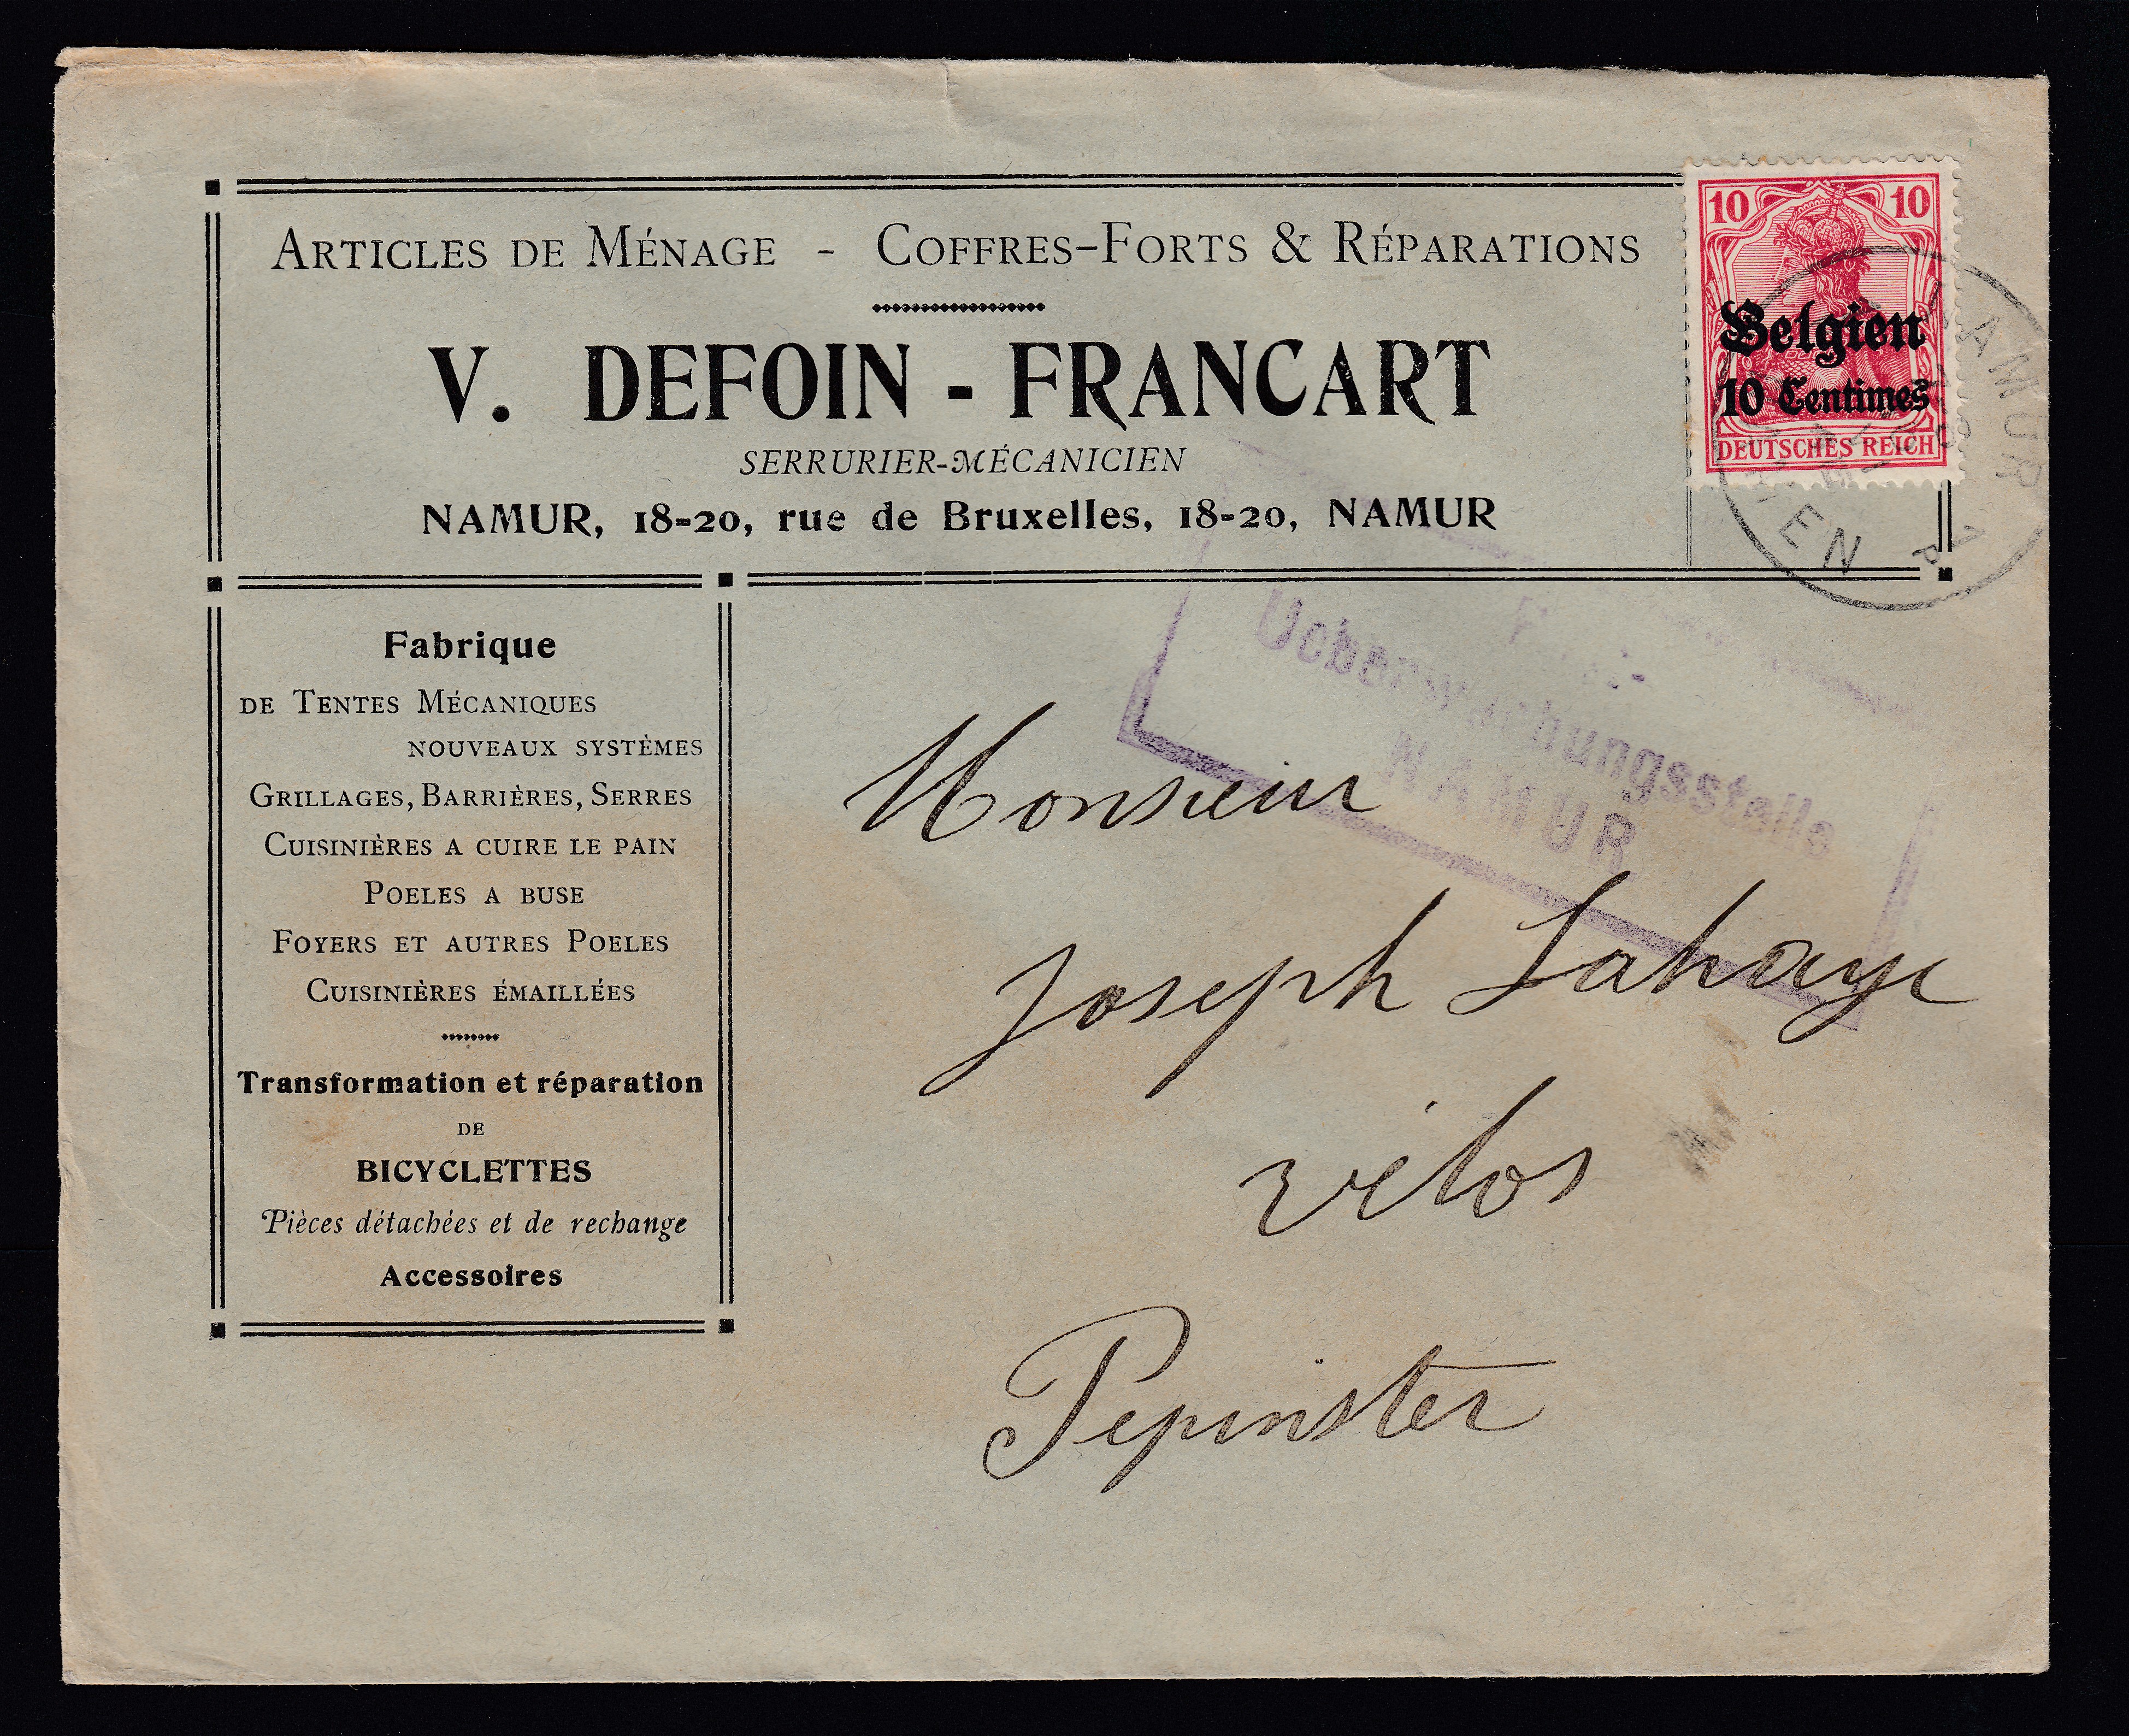 ARTICLES DE MÉNAGE - COFFRES-FORTS & RÉPARATIONS
V. DEFOIN - FRANCART
SERRURIER-MÉCANICIEN
NAMUR, 18-20, rue de Bruxelles, 18-20, NAMUR
10 10
Belgien
10 Centimes
DEUTSCHES REICH
NAMUR
Fabrique
DE TENTES MÉCANIQUES
NOUVEAUX SYSTÈMES
GRILLAGES, BARRIÈRES, SERRES
CUISINIÈRES A CUIRE LE PAIN
POELES A BUSE
FOYERS ET AUTRES POELES
CUISINIÈRES ÉMAILLÉES
Transformation et réparation
DE
BICYCLETTES
Pièces détachées et de rechange
Accessoires
Ueberwachungsstelle
NAMUR
Monsieur
Joseph Lahaye
vélos
Pepinster